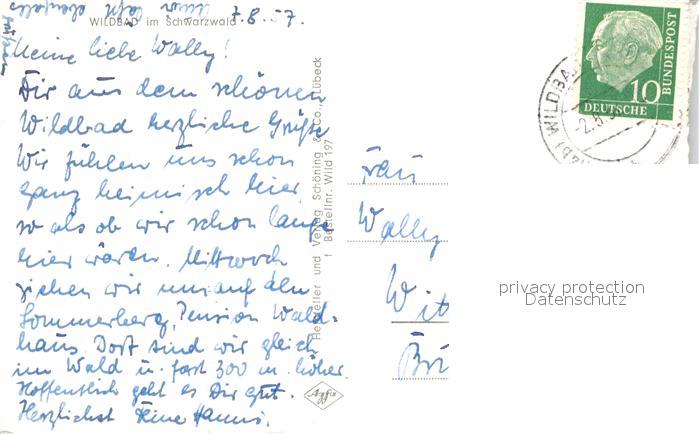 WILDBAD im Schwarzwald
7.8.57.
Meine liebe Wally!
Dir aus dem schönen
Wildbad herzliche Grüße
Wir fühlen uns schon
ganz heimisch hier,
so als ob wir schon lange
hier wären. Mittwoch
ziehen wir um auf den
Sommerberg, Pension Wald-
haus. Dort sind wir gleich
im Wald u. fast 300 m. höher.
Hoffentlich geht es Dir gut.
Herzlichst Deine Hanni.
Hersteller und Verlag Schöning & Co., Lübeck
Bestellnr. Wild 197
Agfa
Frau
Wally
Wit
Brü
10
DEUTSCHE
BUNDESPOST
WILDBAD
privacy protection
Datenschutz